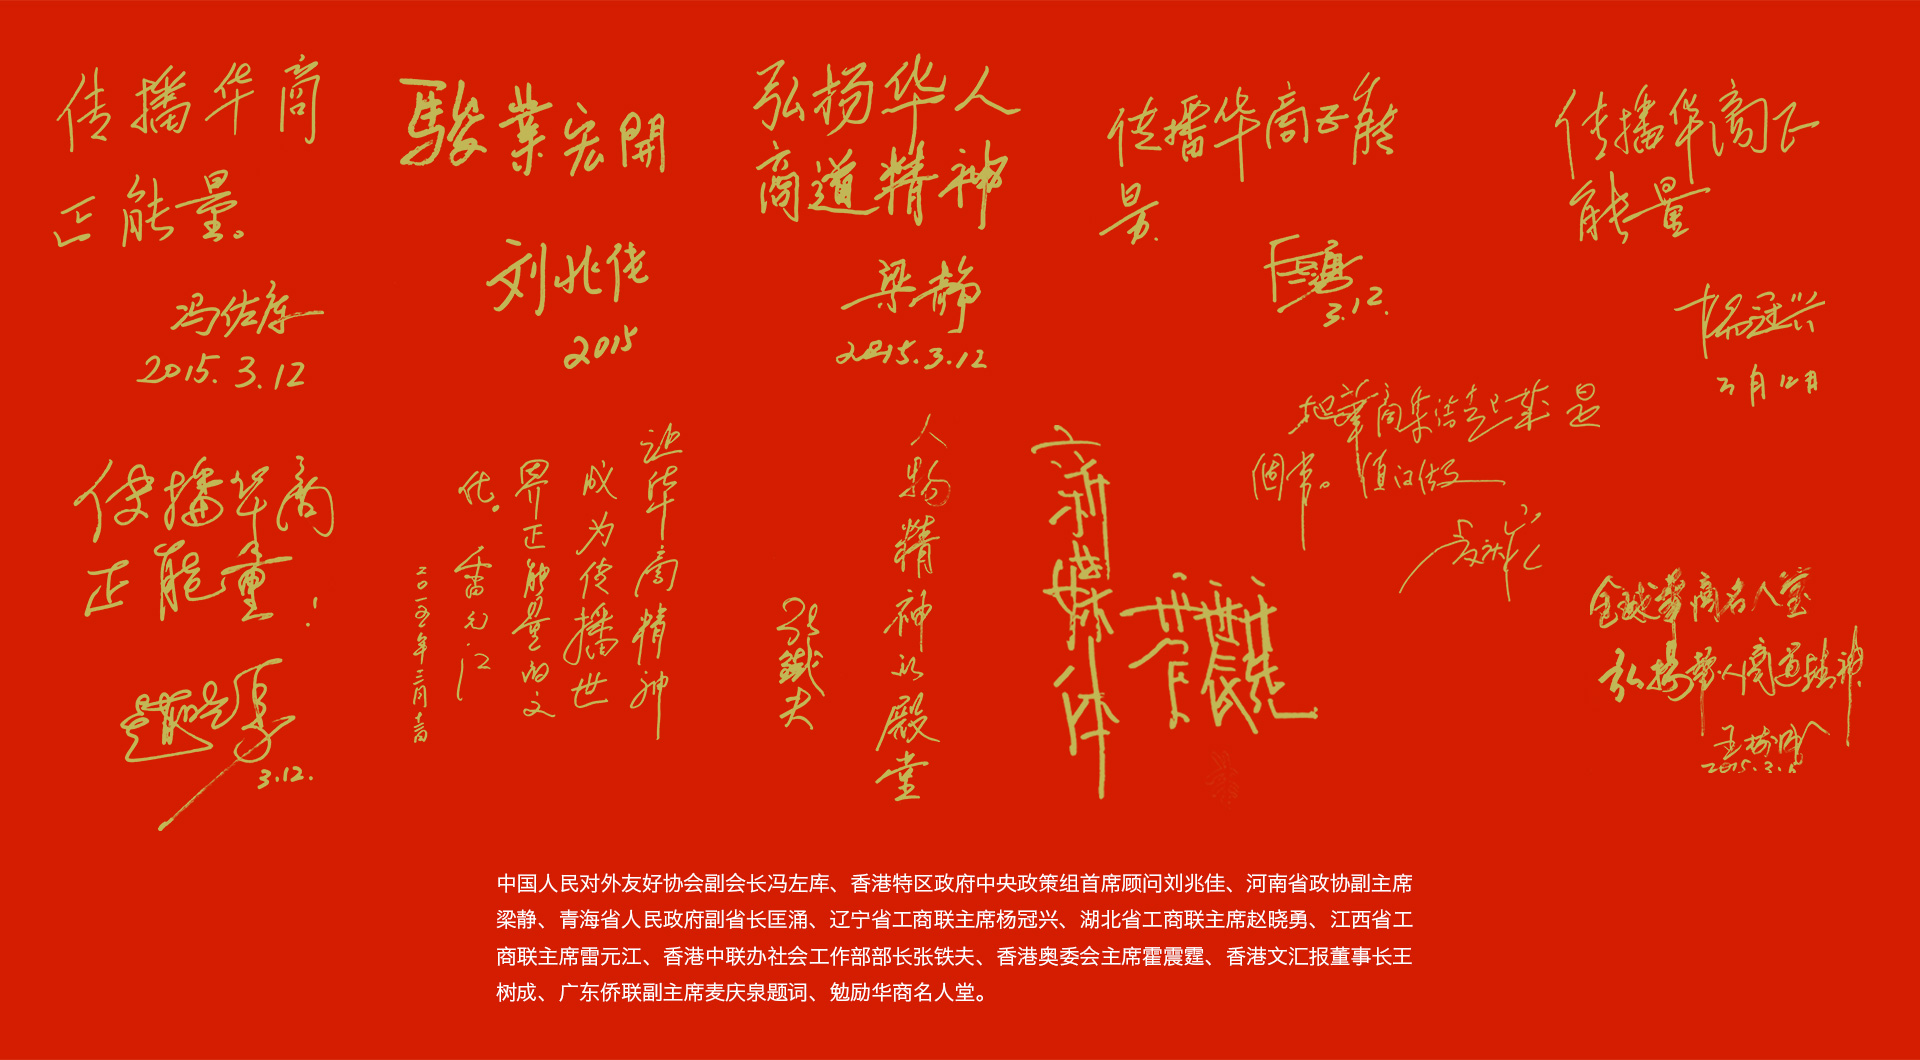 传播华商
正能量。
冯佐库
2015.3.12
駿業宏開
刘兆佳
2015
弘扬华人
商道精神
梁静
2015.3.12
传播华商正能
量.
匡湧
3.12.
传播华商正
能量
杨冠兴
三月12月
传播华商
正能量!
赵晓勇
3.12.
让华商精神
成为传播世
界正能量的文
化。雷元江
二〇一五年三月十二日
人物精神的殿堂
张鐵夫
把華商集结起来是
個
值得做
全球華商名人堂
弘扬華人商道精神
王树成
2015.3.
中国人民对外友好协会副会长冯左库、香港特区政府中央政策组首席顾问刘兆佳、河南省政协副主席
梁静、青海省人民政府副省长匡涌、辽宁省工商联主席杨冠兴、湖北省工商联主席赵晓勇、江西省工
商联主席雷元江、香港中联办社会工作部部长张铁夫、香港奥委会主席霍震霆、香港文汇报董事长王
树成、广东侨联副主席麦庆泉题词、勉励华商名人堂。